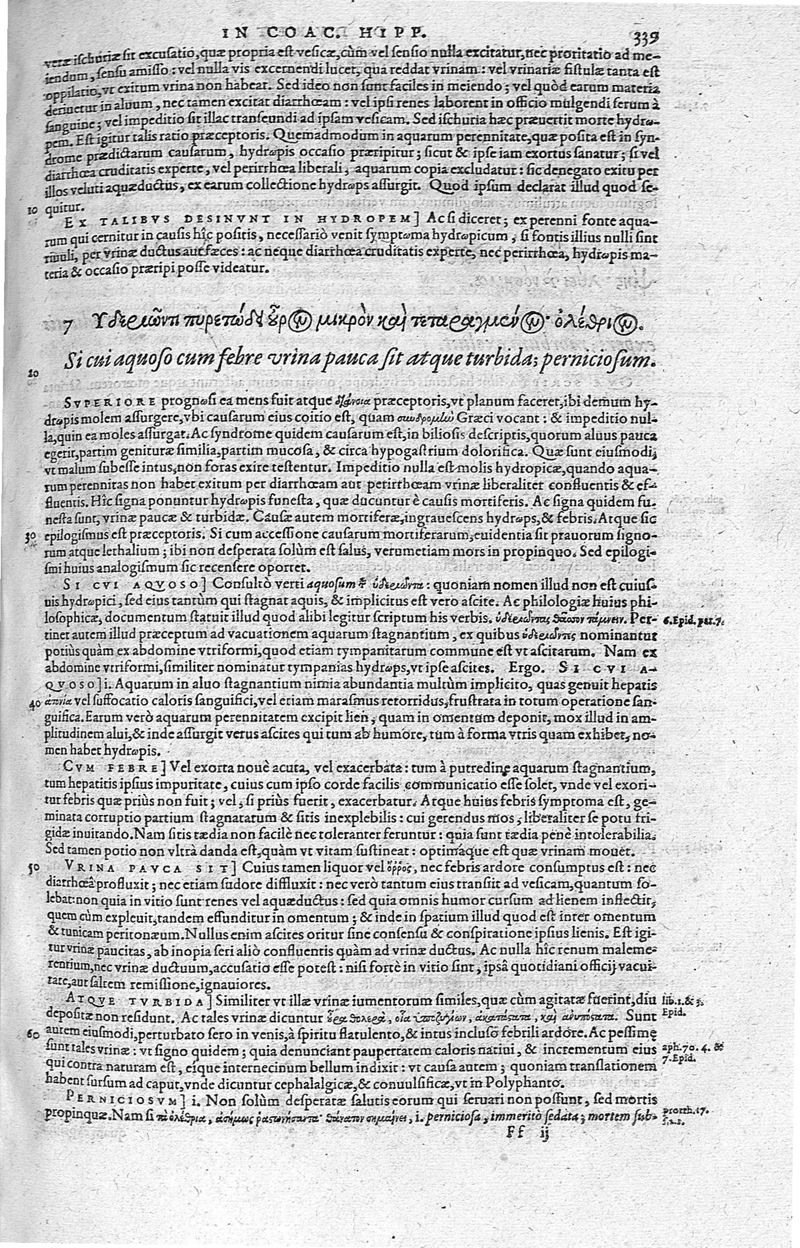 IN COAC. HIPP. 339
veræ ischuriæ sit excusatio, quæ propria est vesicæ, cùm vel sensio nulla excitatur, nec proritatio ad me-
iendum, sensu amisso : vel nulla vis excernendi lucet, qua reddat vrinam : vel vrinariæ fistulæ tanta est
oppilatio, vt exitum vrina non habeat. Sed ideo non sunt faciles in meiendo ; vel quòd earum materia
deriuetur in aluum, nec tamen excitat diarrhœam : vel ipsi renes laborent in officio mulgendi serum à
sanguine ; vel impeditio sit illac transeundi ad ipsam vesicam. Sed ischuria hæc præuertit morte hydrω-
pem. Est igitur talis ratio præceptoris. Quemadmodum in aquarum perennitate, quæ posita est in syn-
drome prædictarum causarum, hydrωps occasio præripitur ; sicut & ipse iam exortus sanatur ; si vel
diarrhœa cruditatis experte, vel perirrhœa liberali, aquarum copia excludatur : sic denegato exitu per
illos veluti aquæductus, ex earum collectione hydrωps assurgit. Quod ipsum declarat illud quod se-
10 quitur.
EX TALIBVS DESINVNT IN HYDROPEM] Ac si diceret ; ex perenni fonte aqua-
rum qui cernitur in causis hîc positis, necessariò venit symptωma hydrωpicum, si fontis illius nulli sint
riuuli, per vrinæ ductus aut fæces : ac neque diarrhœa cruditatis experte, nec perirrhœa, hydrωpis ma-
teria & occasio præripi posse videatur.
7 Υδεριῶντι πυρετώδει ὖρον μικρὸν καὶ τεταραγμένον· ὀλέθριον.
Si cui aquoso cum febre vrina pauca sit atque turbida; perniciosum.
20
SVPERIORE prognωsi ea mens fuit atque præceptoris, vt planum faceret, ibi demum hy-
drωpis molem assurgere, vbi causarum eius coitio est, quam συνδρομὴν Græci vocant : & impeditio nul-
la, quin ea moles assurgat. Ac syndrome quidem causarum est, in biliosis descriptis, quorum aluus pauca
egerit, partim genituræ similia, partim mucosa, & circa hypogastrium dolorifica. Quæ sunt eiusmodi,
vt malum subesse intus, non foras exire testentur. Impeditio nulla est molis hydropicæ, quando aqua-
rum perennitas non habet exitum per diarrhœam aut perirrhœam vrinæ liberaliter confluentis & ef-
fluentis. Hîc signa ponuntur hydrωpis funesta, quæ ducuntur è causis mortiferis. Ac signa quidem fu-
nesta sunt, vrinæ paucæ & turbidæ. Causæ autem mortiferæ, ingrauescens hydrωps, & febris. Atque sic
30 epilogismus est præceptoris. Si cum accessione causarum mortiferarum, euidentia sit prauorum signo-
rum atque lethalium ; ibi non desperata solùm est salus, verumetiam mors in propinquo. Sed epilogi-
smi huius analogismum sic recensere oportet.
SI CVI AQVOSO] Consultò verti aquosum τὸν ὑδεριῶντα : quoniam nomen illud non est cuius-
uis hydrωpici, sed eius tantùm qui stagnat aquis, & implicitus est vero ascite. Ac philologiæ huius phi-
losophicæ, documentum statuit illud quod alibi legitur scriptum his verbis. ὑδεριῶντας θᾶσσον τάμνειν. Per- 6.Epid.par.7.
tinet autem illud præceptum ad vacuationem aquarum stagnantium, ex quibus ὑδεριῶντες nominantur
potiùs quàm ex abdomine vtriformi, quod etiam tympanitarum commune est vt ascitarum. Nam ex
abdomine vtriformi, similiter nominatur tympanias hydrωps, vt ipse ascites. Ergo. SI CVI A-
QVOSO] i. Aquarum in aluo stagnantium nimia abundantia multùm implicito, quas genuit hepatis
40 ἀτονία vel suffocatio caloris sanguifici, vel etiam marasmus retorridus, frustrata in totum operatione san-
guifica. Earum verò aquarum perennitatem excipit lien, quam in omentum deponit, mox illud in am-
plitudinem alui, & inde assurgit verus ascites qui tum ab humore, tum à forma vtris quam exhibet, no-
men habet hydrωpis.
CVM FEBRE] Vel exorta nouè acuta, vel exacerbata : tum à putredine aquarum stagnantium,
tum hepatitis ipsius impuritate, cuius cum ipso corde facilis communicatio esse solet, vnde vel exori-
tur febris quæ priùs non fuit ; vel, si priùs fuerit, exacerbatur. Atque huius febris symptoma est, ge-
minata corruptio partium stagnatarum & sitis inexplebilis : cui gerendus mos, liberaliter se potu fri-
gidæ inuitando. Nam sitis tædia non facilè nec toleranter feruntur : quia sunt tædia penè intolerabilia.
Sed tamen potio non vltrà danda est, quàm vt vitam sustineat : optimaque est quæ vrinam mouet.
50 VRINA PAVCA SIT] Cuius tamen liquor vel ὀῤῥὸς, nec febris ardore consumptus est : nec
diarrhœâ profluxit ; nec etiam sudore diffluxit : nec verò tantum eius transiit ad vesicam, quantum so-
lebat: non quia in vitio sunt renes vel aquæductus : sed quia omnis humor cursum ad lienem inflectit,
quem cùm expleuit, tandem effunditur in omentum ; & inde in spatium illud quod est inter omentum
& tunicam peritonæum. Nullus enim ascites oritur sine consensu & conspiratione ipsius lienis. Est igi-
tur vrinæ paucitas, ab inopia seri aliò confluentis quàm ad vrinæ ductus. Ac nulla hîc renum maleme-
rentium, nec vrinæ ductuum, accusatio esse potest : nisi fortè in vitio sint, ipsâ quotidiani officij vacui-
tate, aut saltem remissione, ignauiores.
ATQVE TVRBIDA] Similiter vt illæ vrinæ iumentorum similes, quæ cùm agitatæ fuerint, diu lib.1.& 3.
depositæ non residunt. Ac tales vrinæ dicuntur Sunt Epid.
60 autem eiusmodi, perturbato sero in venis, à spiritu flatulento, & intus incluso febrili ardore. Ac pessimæ
sunt tales vrinæ : vt signo quidem ; quia denunciant paupertatem caloris natiui, & incrementum eius aph.70. 4. &
qui contra naturam est, eique internecinum bellum indixit : vt causa autem ; quoniam translationem 7.Epid.
habent sursum ad caput, vnde dicuntur cephalalgicæ, & conuulsificæ, vt in Polyphanto.
PERNICIOSVM] i. Non solùm desperatæ salutis eorum qui seruari non possunt, sed mortis
propinquæ. Nam si τὰ ὀλέθρια, ἀσήμως ῥαστωνήσαντα· θάνατον σημαίνει, i. perniciosa, immeritò sedata; mortem sub- prorrh.17.
Ff ij